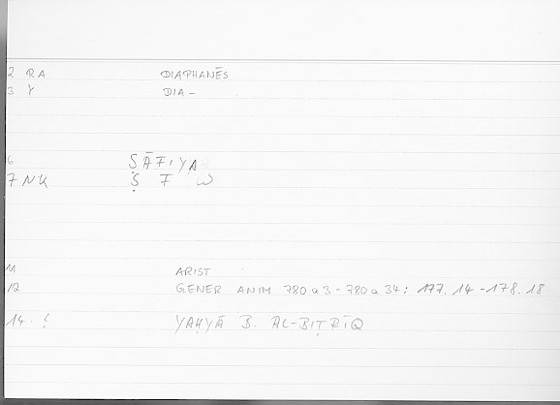 2 RA DIAPHANĒS
3 Y DIA-
6 ṢĀFIYA
7 NK Ṣ F W
11 ARIST
12 GENER ANIM 780a3-780a34: 177.14-178.18
14. ! YAḤYĀ B. AL-BIṬRĪQ